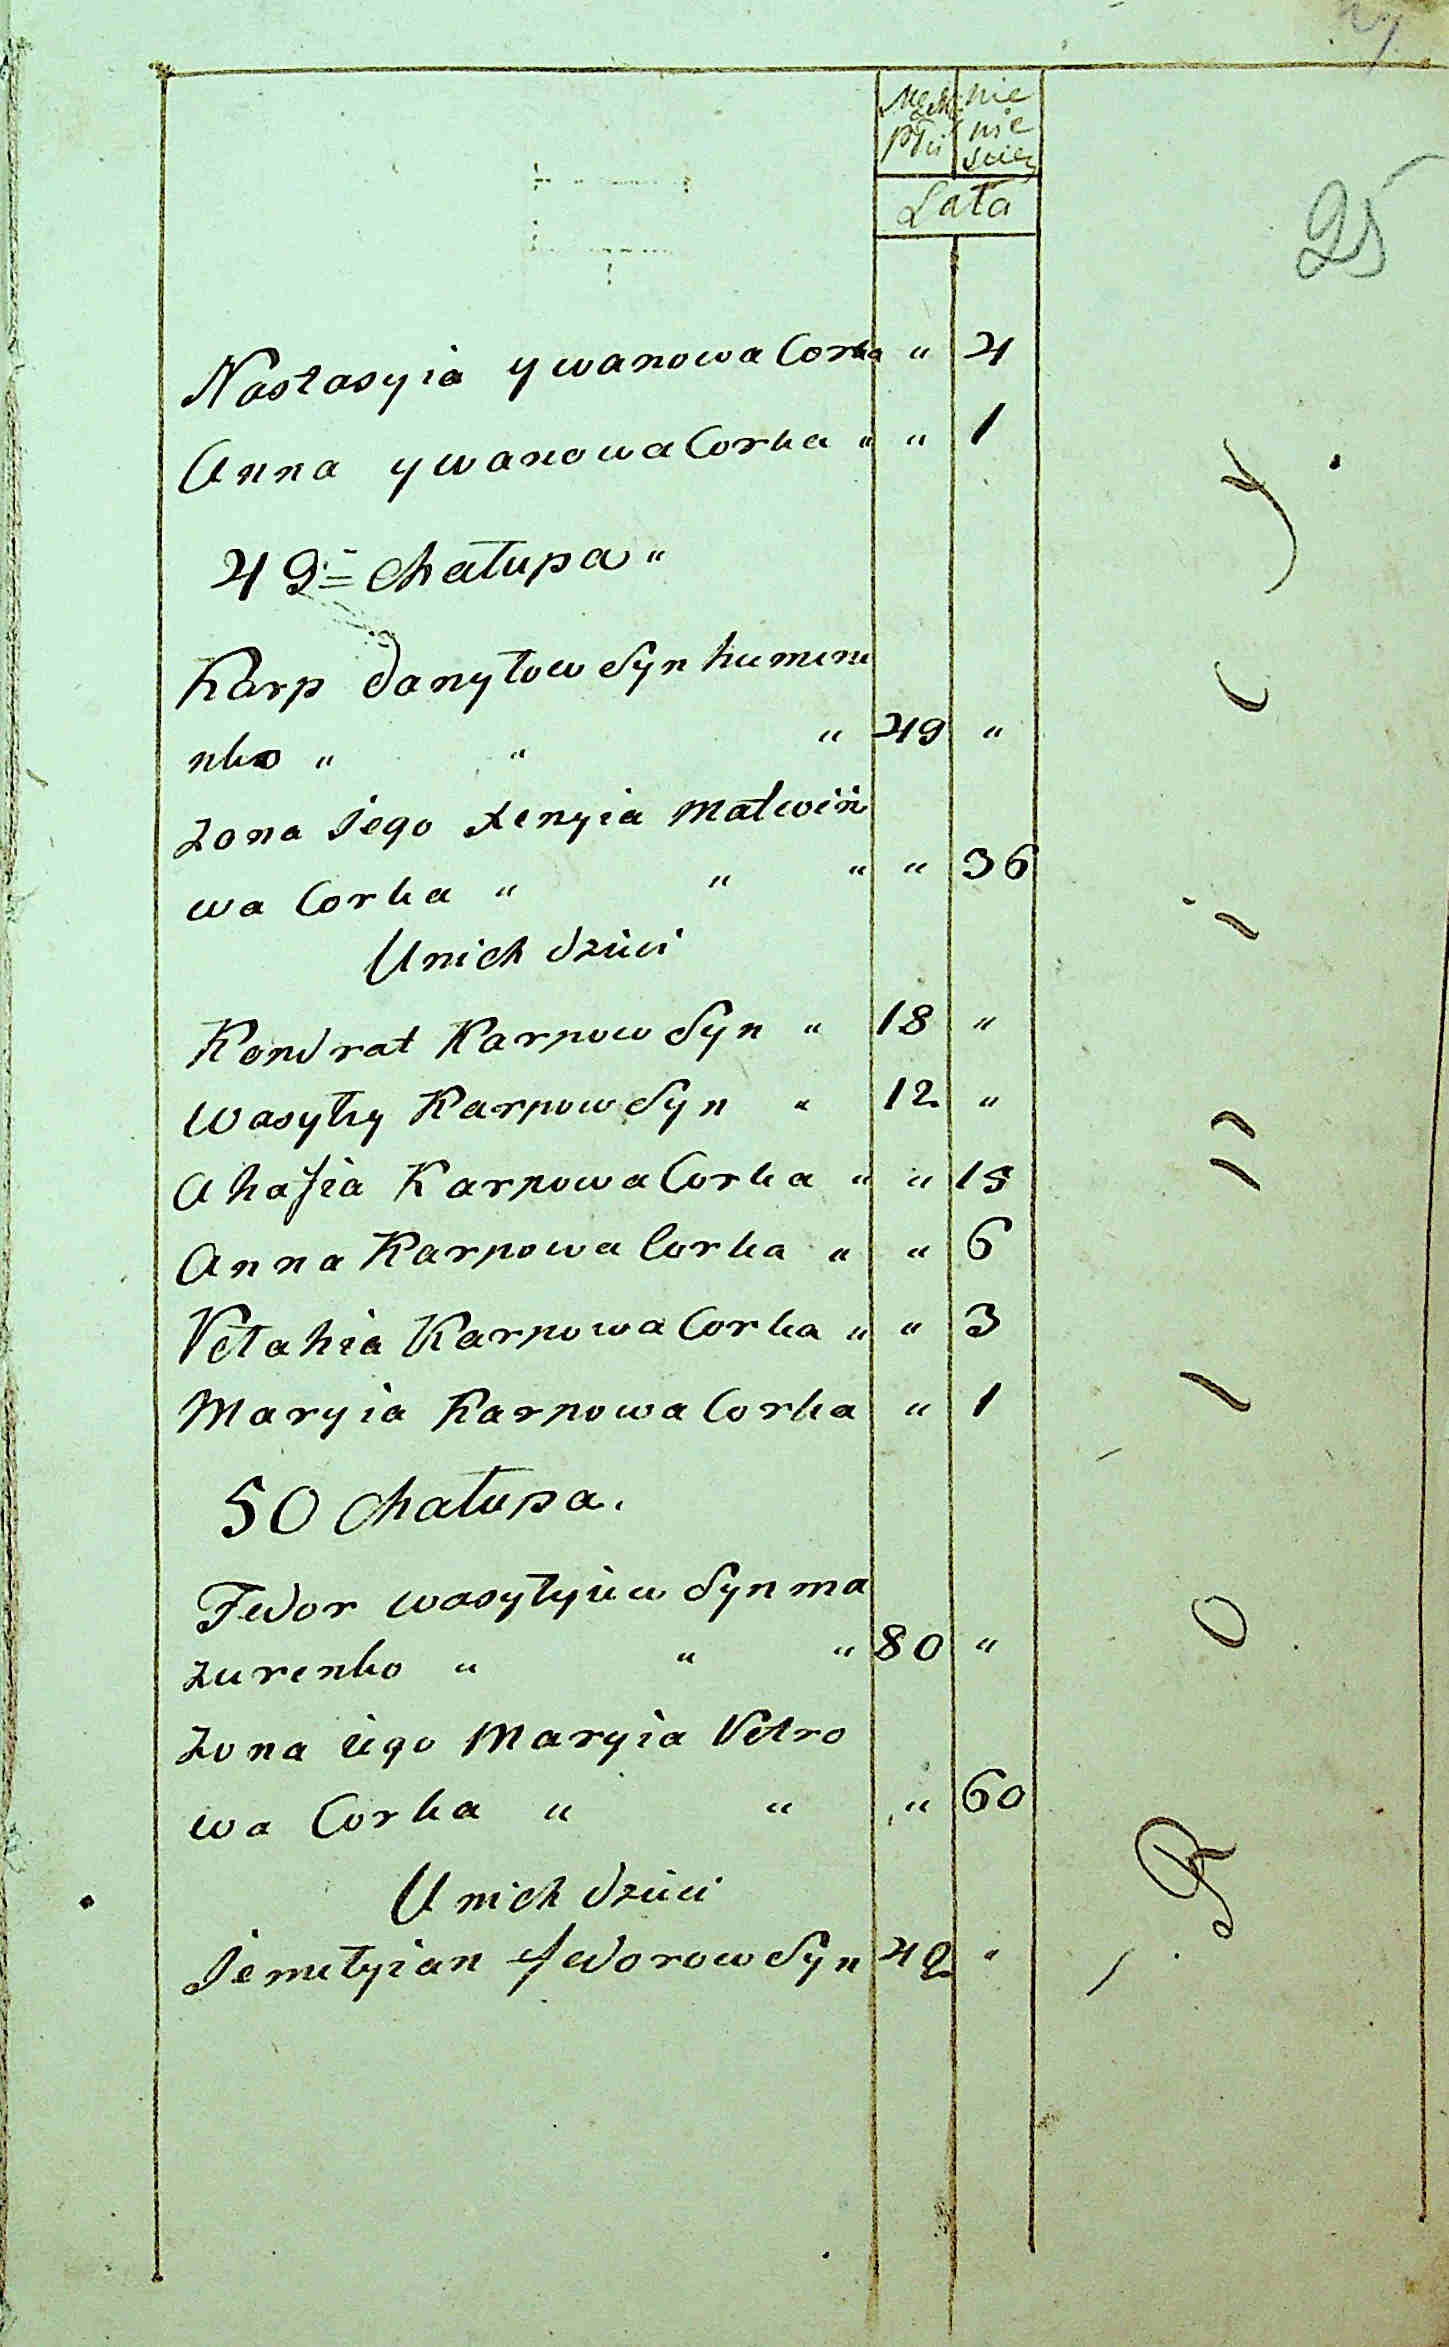 25
Męzk
płci
nie
wie
sciey
Lata
Nastasyia ywanowa Corka " 4
Anna ywanowa Corka " " 1
49 Chałupa "
Karp Danyłow Syn humine
nko " " " 49 "
Zona Jego Xenyia Matwiie
wa Corka " " " " 36
U nich dzieci
Kondrat Karpow Syn " 18 "
Wasyly Karpow Syn " 12 "
Ahafia Karpowa Corka " " 15
Anna Karpowa Corka " " 6
Petahia Karpowa Corka " " 3
Maryia Karpowa Corka " 1
50 Chałupa.
Fedor Wasyłyiew Syn ma
zurenko " " " 80 "
Zona iego Maryia Petro
wa Corka " " " 60
U nich dzieci
Jemełyian fedorow Syn 42 "